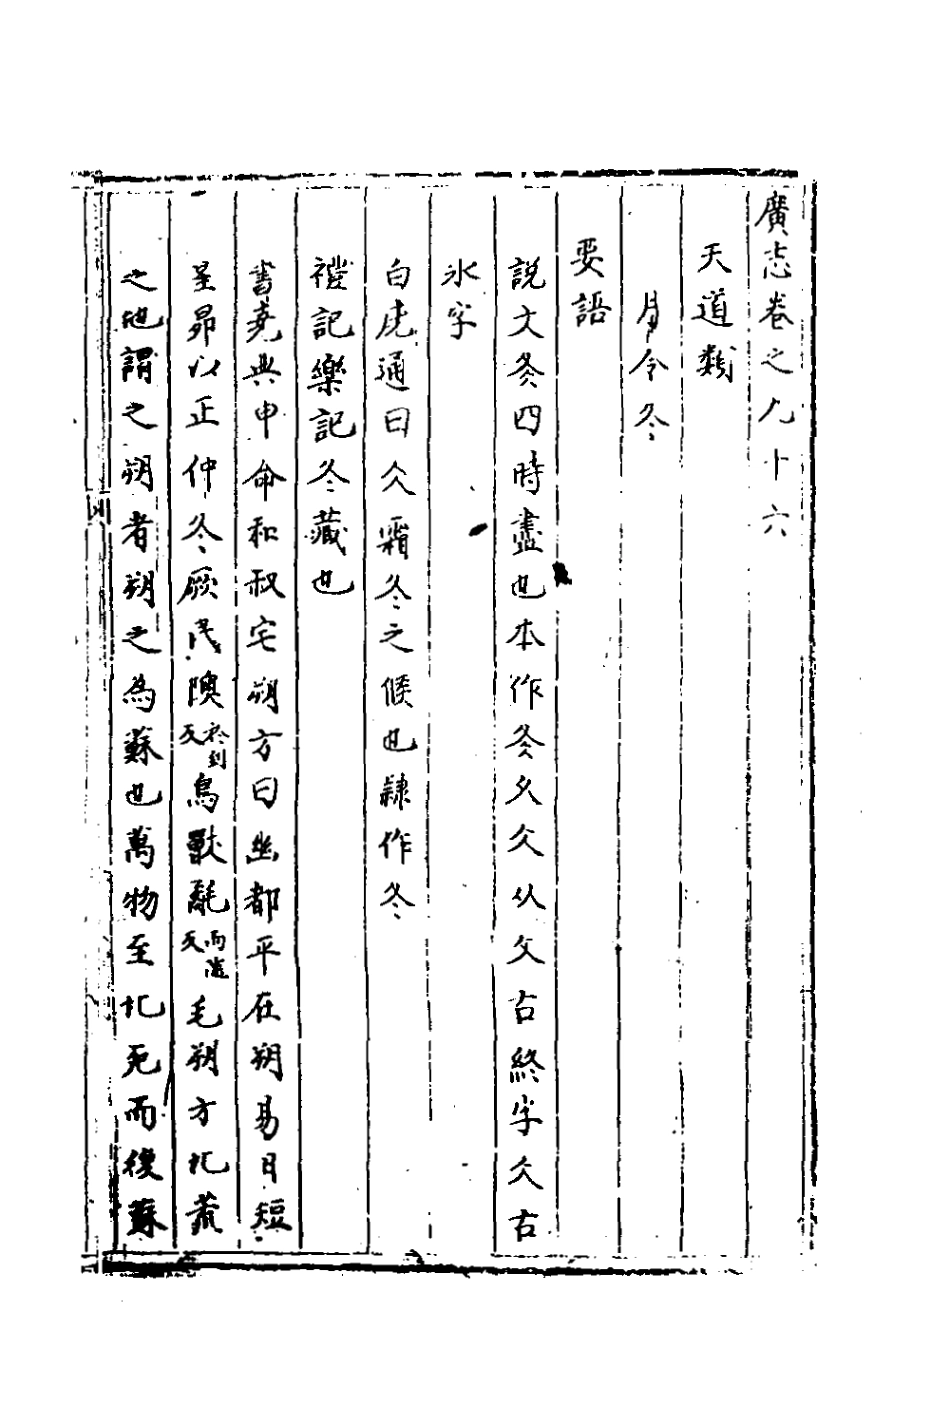 廣志卷之九十六
天道類
月令冬
要語
說文冬四時盡也本作冬夂仌从夂古終字仌古
氷字
白虎通曰仌霜冬之候也隸作冬
禮記樂記冬藏也
書堯典申命和叔宅朔方曰幽都平在朔易日短
星昴以正仲冬厥民隩於到反鳥獸氄而隴反毛朔方北荒
之地謂之朔者朔之為蘇也萬物至北死而復蘇